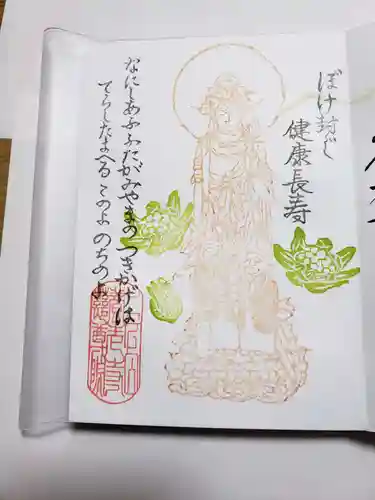 ぼけ封じ
健康長寿
なにしあふふたがみやまのつきかげは
てらしたまへるこのよのちのよ